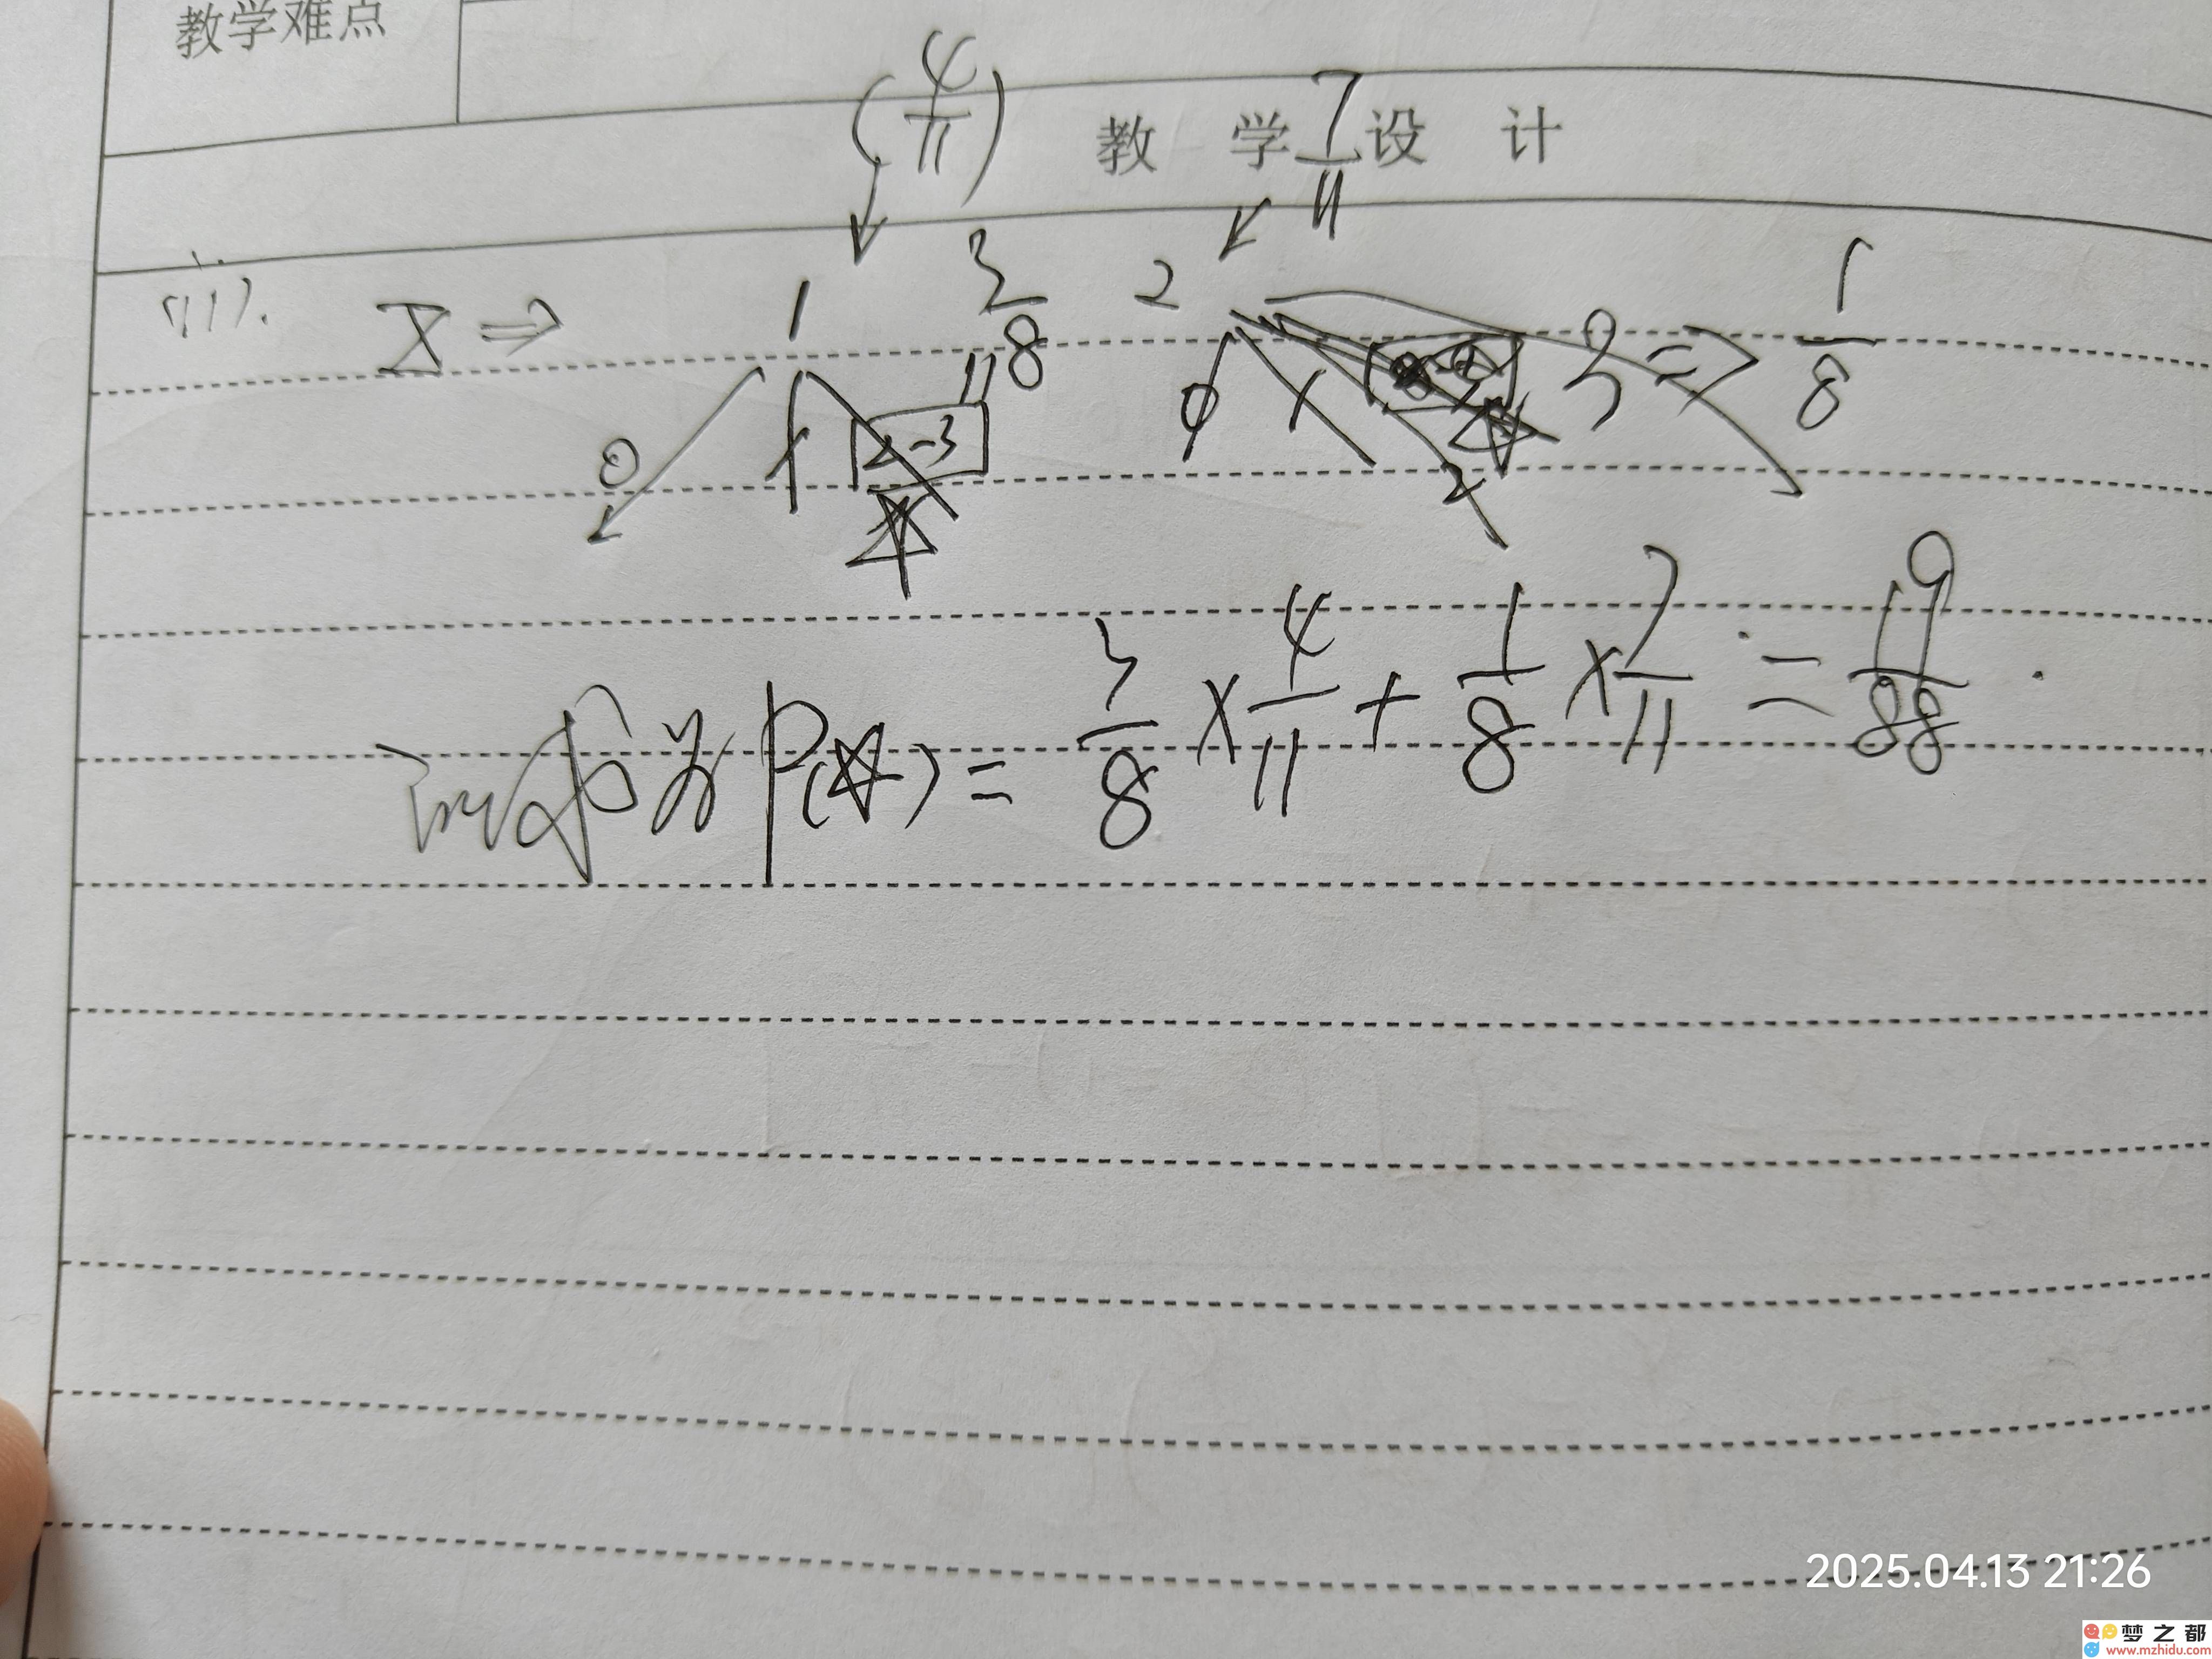 教学难点
(4/11) 7/11
教 学 设 计
(1).
X ⇒ 1 3/8 2 3 ⇒ 1/8
0 1 2-3 0 1 2
☆ ☆
所求为 P(☆) = 3/8 × 4/11 + 1/8 × 7/11 = 19/88 .
2025.04.13 21:26
梦之都
www.mzhidu.com